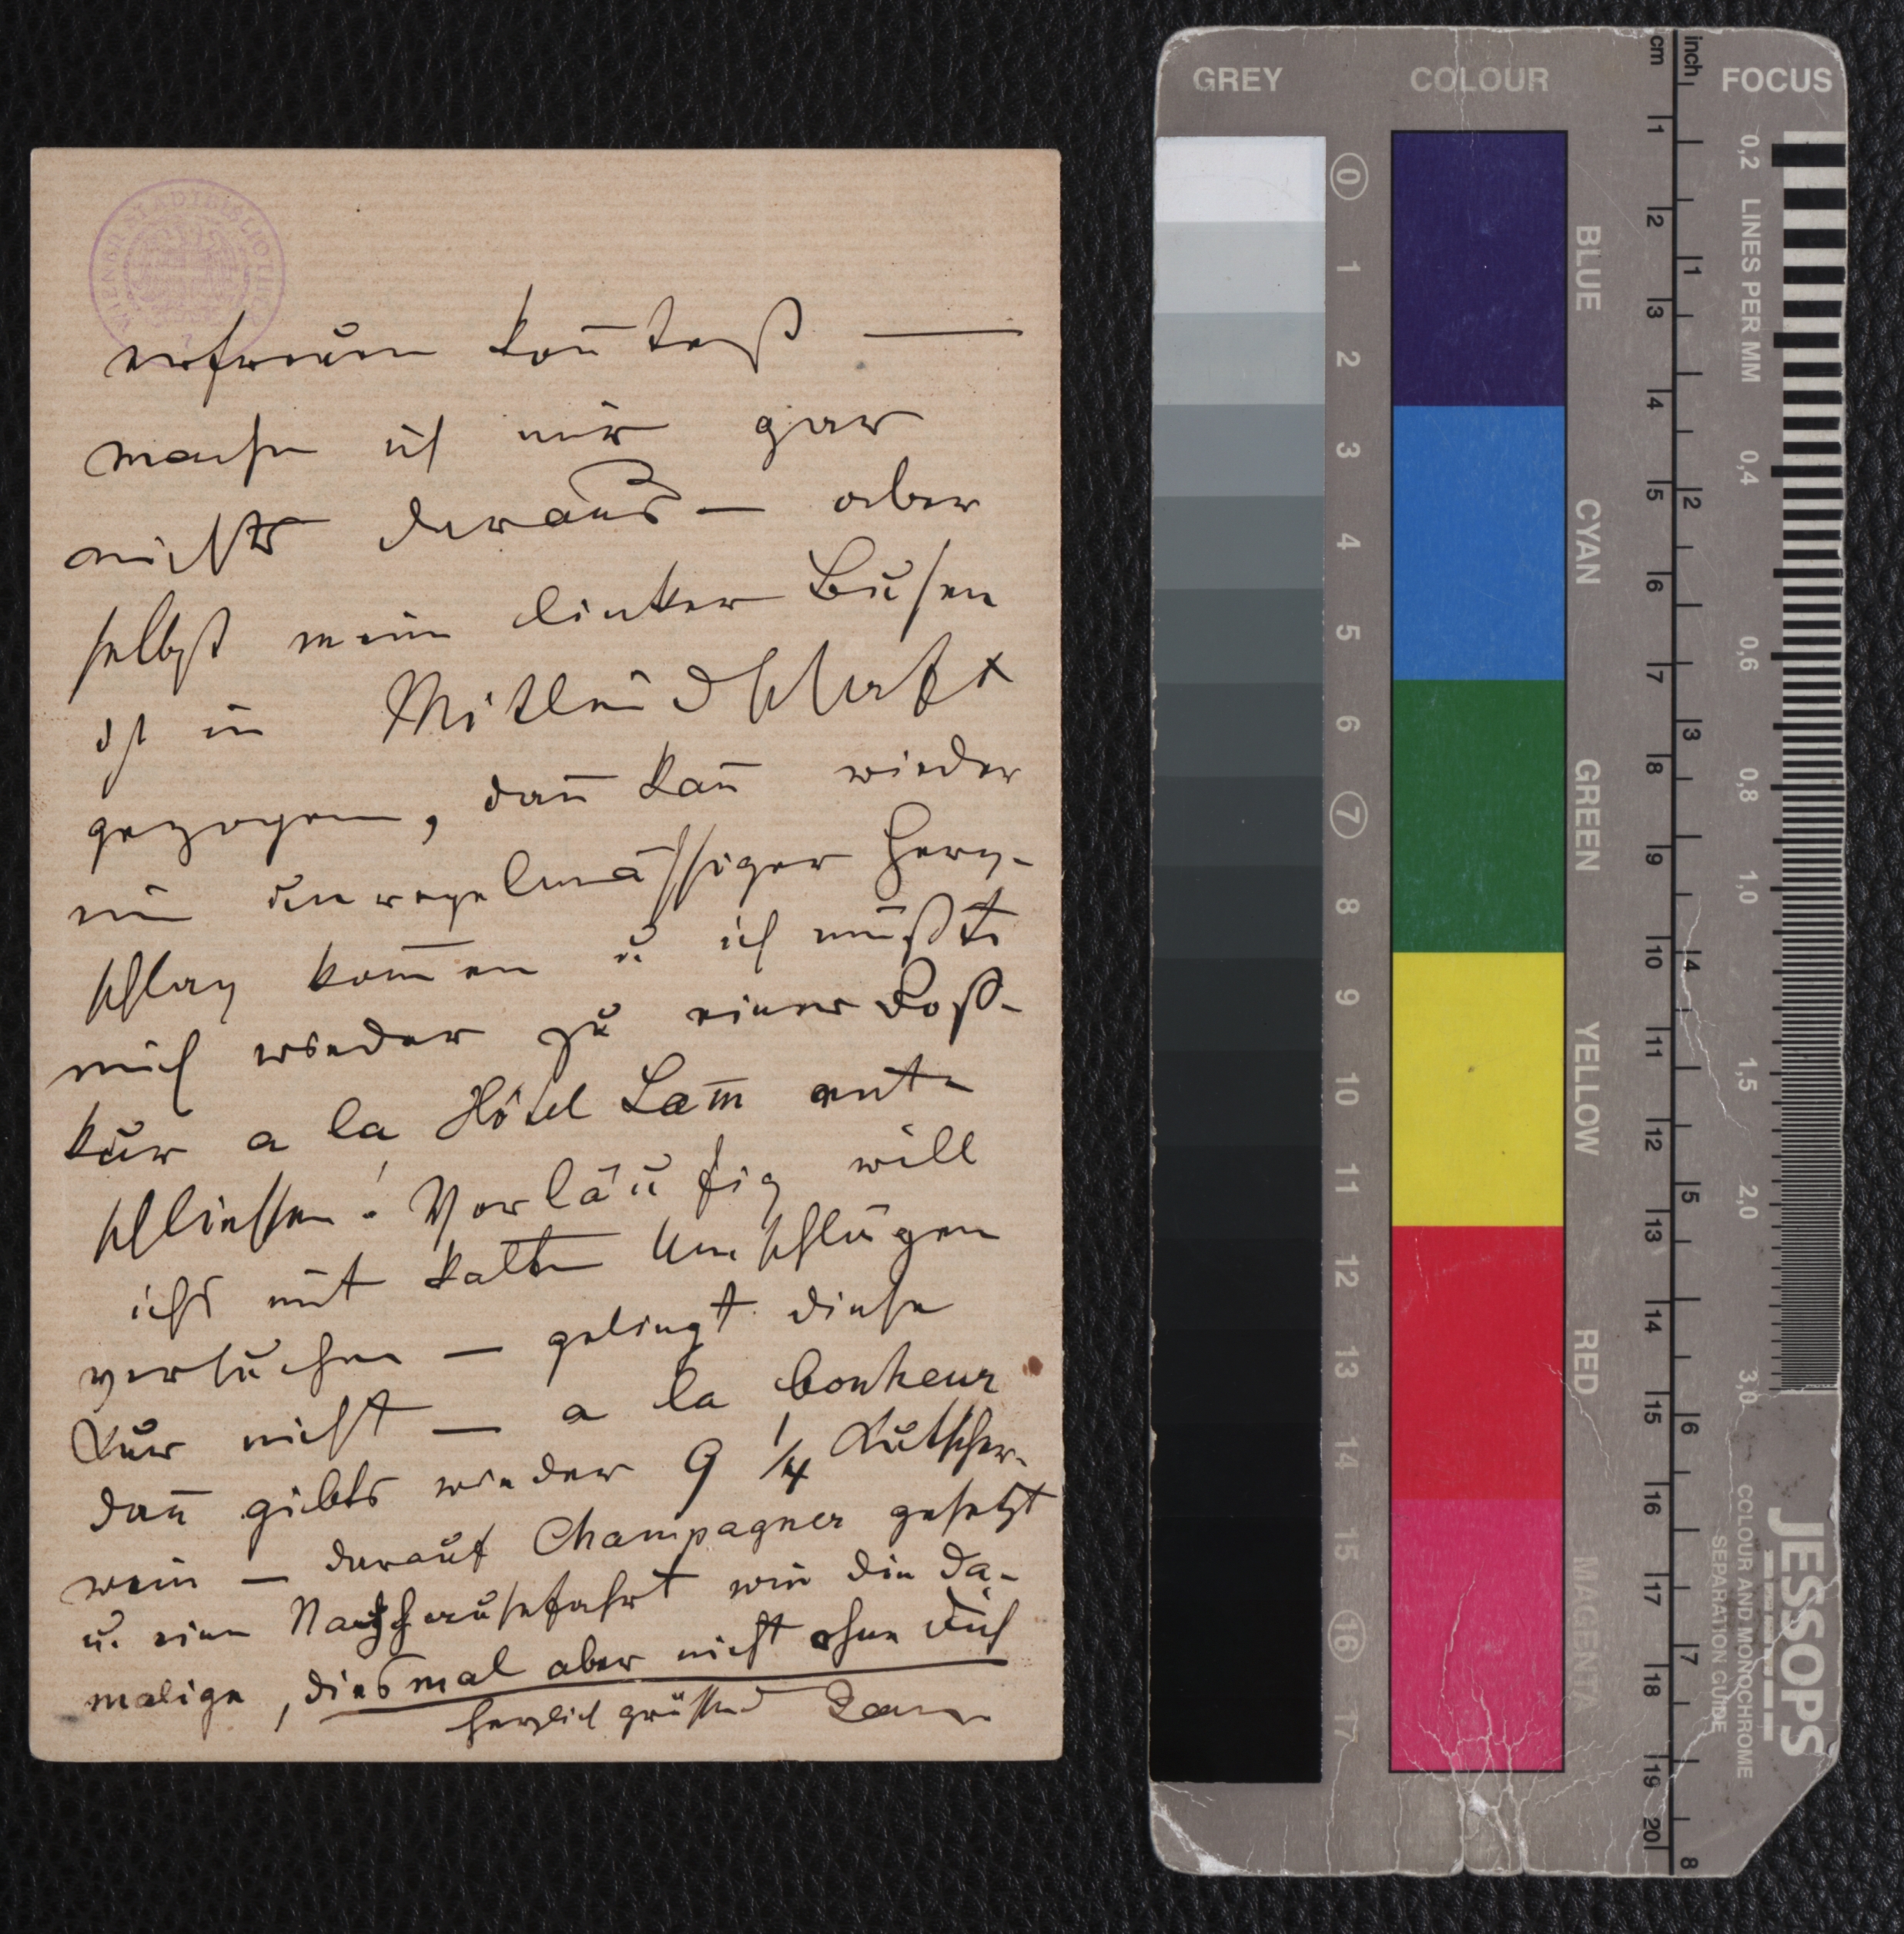 WIENER STADTBIBLIOTHEK
erfreuen koñteſt —
mache ich mir gar
nichts daraus — aber
selbst mein linker Busen
ist in Mitleidschaft
gezogen, dañ kañ wieder
ein unregelmässiger Herz-
schlag kom̄en u ich müßte
mich wieder zu einer Roß-
kur a la Hôtel Lam̄ ent-
schliessen! Vorläufig will
ichs mit kalten Umschlägen
versuchen — gelingt diese
Kur nicht — a la bonheur
dañ gibts wieder 9 1/4 Kutscher-
wein — darauf Champagner gesetzt
u. eine Nachhausefahrt wie die da-
malige, diesmal aber nicht ohne Dich
herzlich grüssend
GREY COLOUR FOCUS
cm inch
0 1 2 3 4 5 6 7 8 9 10 11 12 13 14 15 16 17
BLUE CYAN GREEN YELLOW RED MAGENTA
1 2 3 4 5 6 7 8 9 10 11 12 13 14 15 16 17 18 19 20
1 2 3 4 5 6 7 8
0,2 LINES PER MM 0,4 0,6 0,8 1,0 1,5 2,0 3,0
COLOUR AND MONOCHROME
SEPARATION GUIDE
JESSOPS